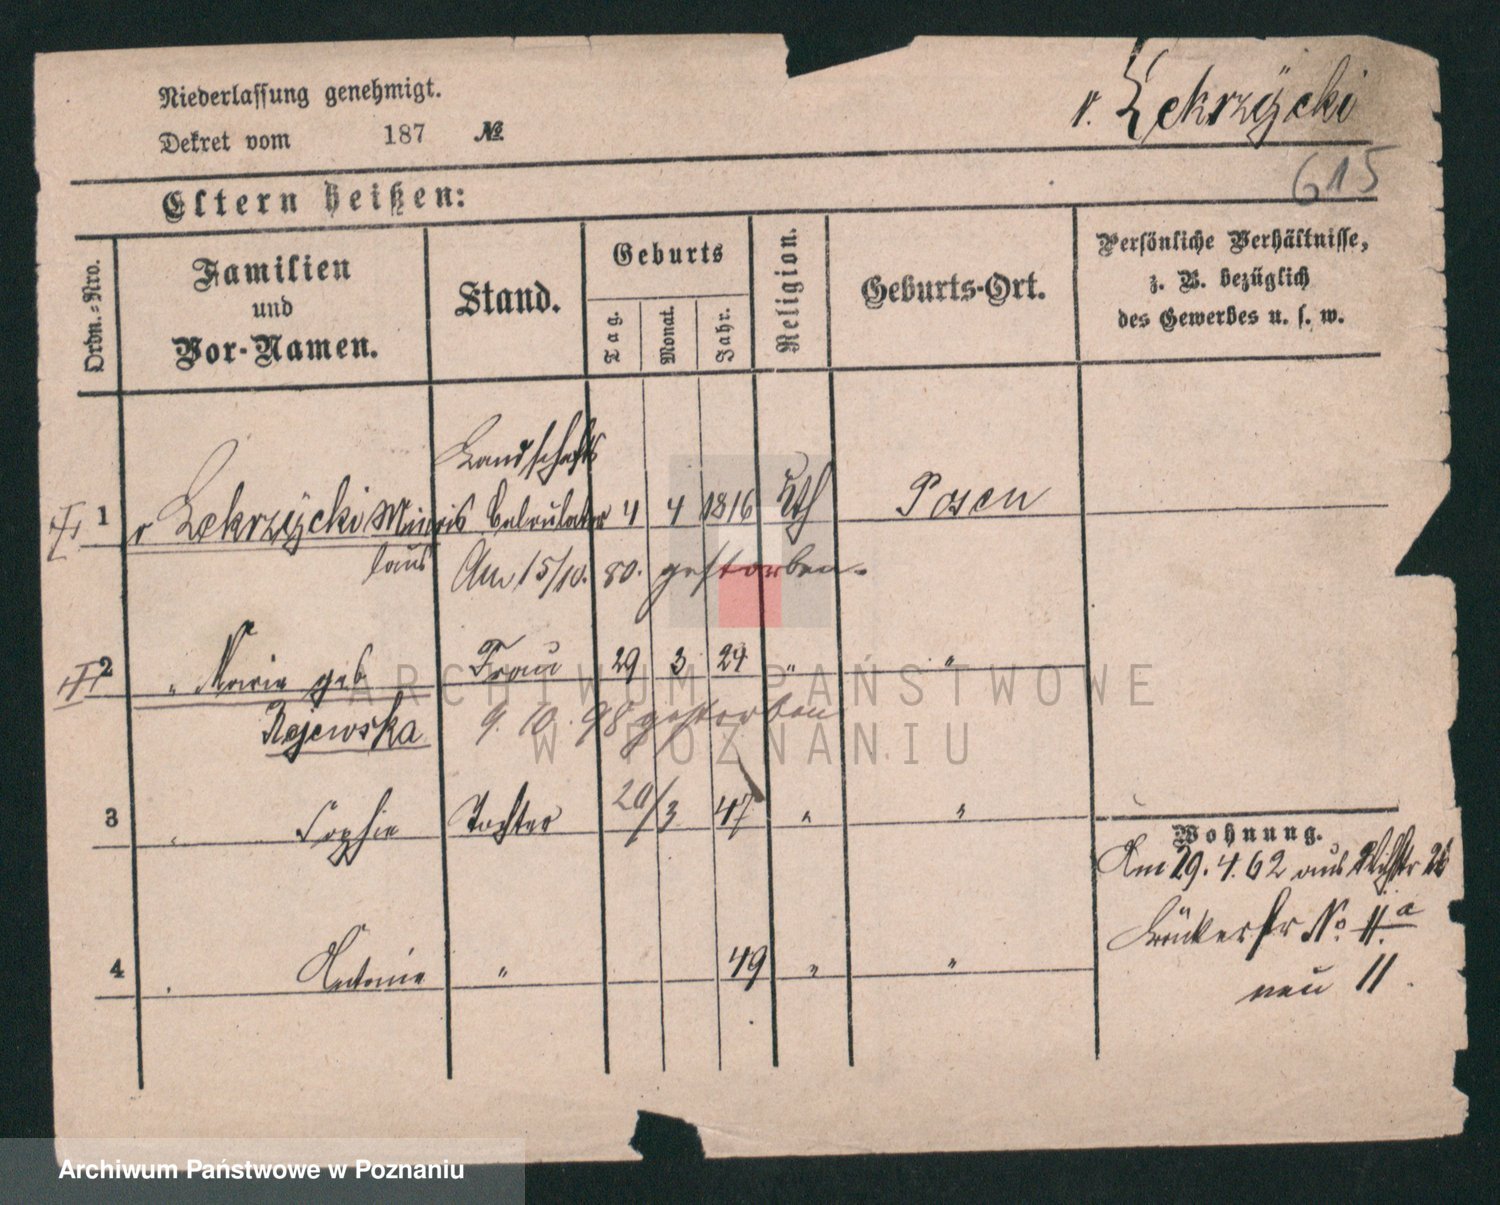 Niederlassung genehmigt.
v. Zekrzÿcki
Dekret vom 187 №
615
Eltern heißen:
Ordn.-Nro.
Familien
und
Vor-Namen.
Stand.
Geburts
Tag.
Monat.
Jahr.
Religion.
Geburts-Ort.
Persönliche Verhältnisse,
z. B. bezüglich
des Gewerbes u. s. w.
Landschafts
1 v Zekrzÿcki Calculator 4 4 1816 Kth Posen
laus Am 15/10. 80. gestorben.
2 " Marie geb Frau 29 3 24 " "
Rajewska 9. 10. 98 gestorben
3 " Sophie Tochter 20/3 47 " "
Wohnung.
Am 29. 4. 62 aus
4 " Antonie " 49 " "
No. 11.a
neu 11.
ARCHIWUM PAŃSTWOWE
W POZNANIU
Archiwum Państwowe w Poznaniu